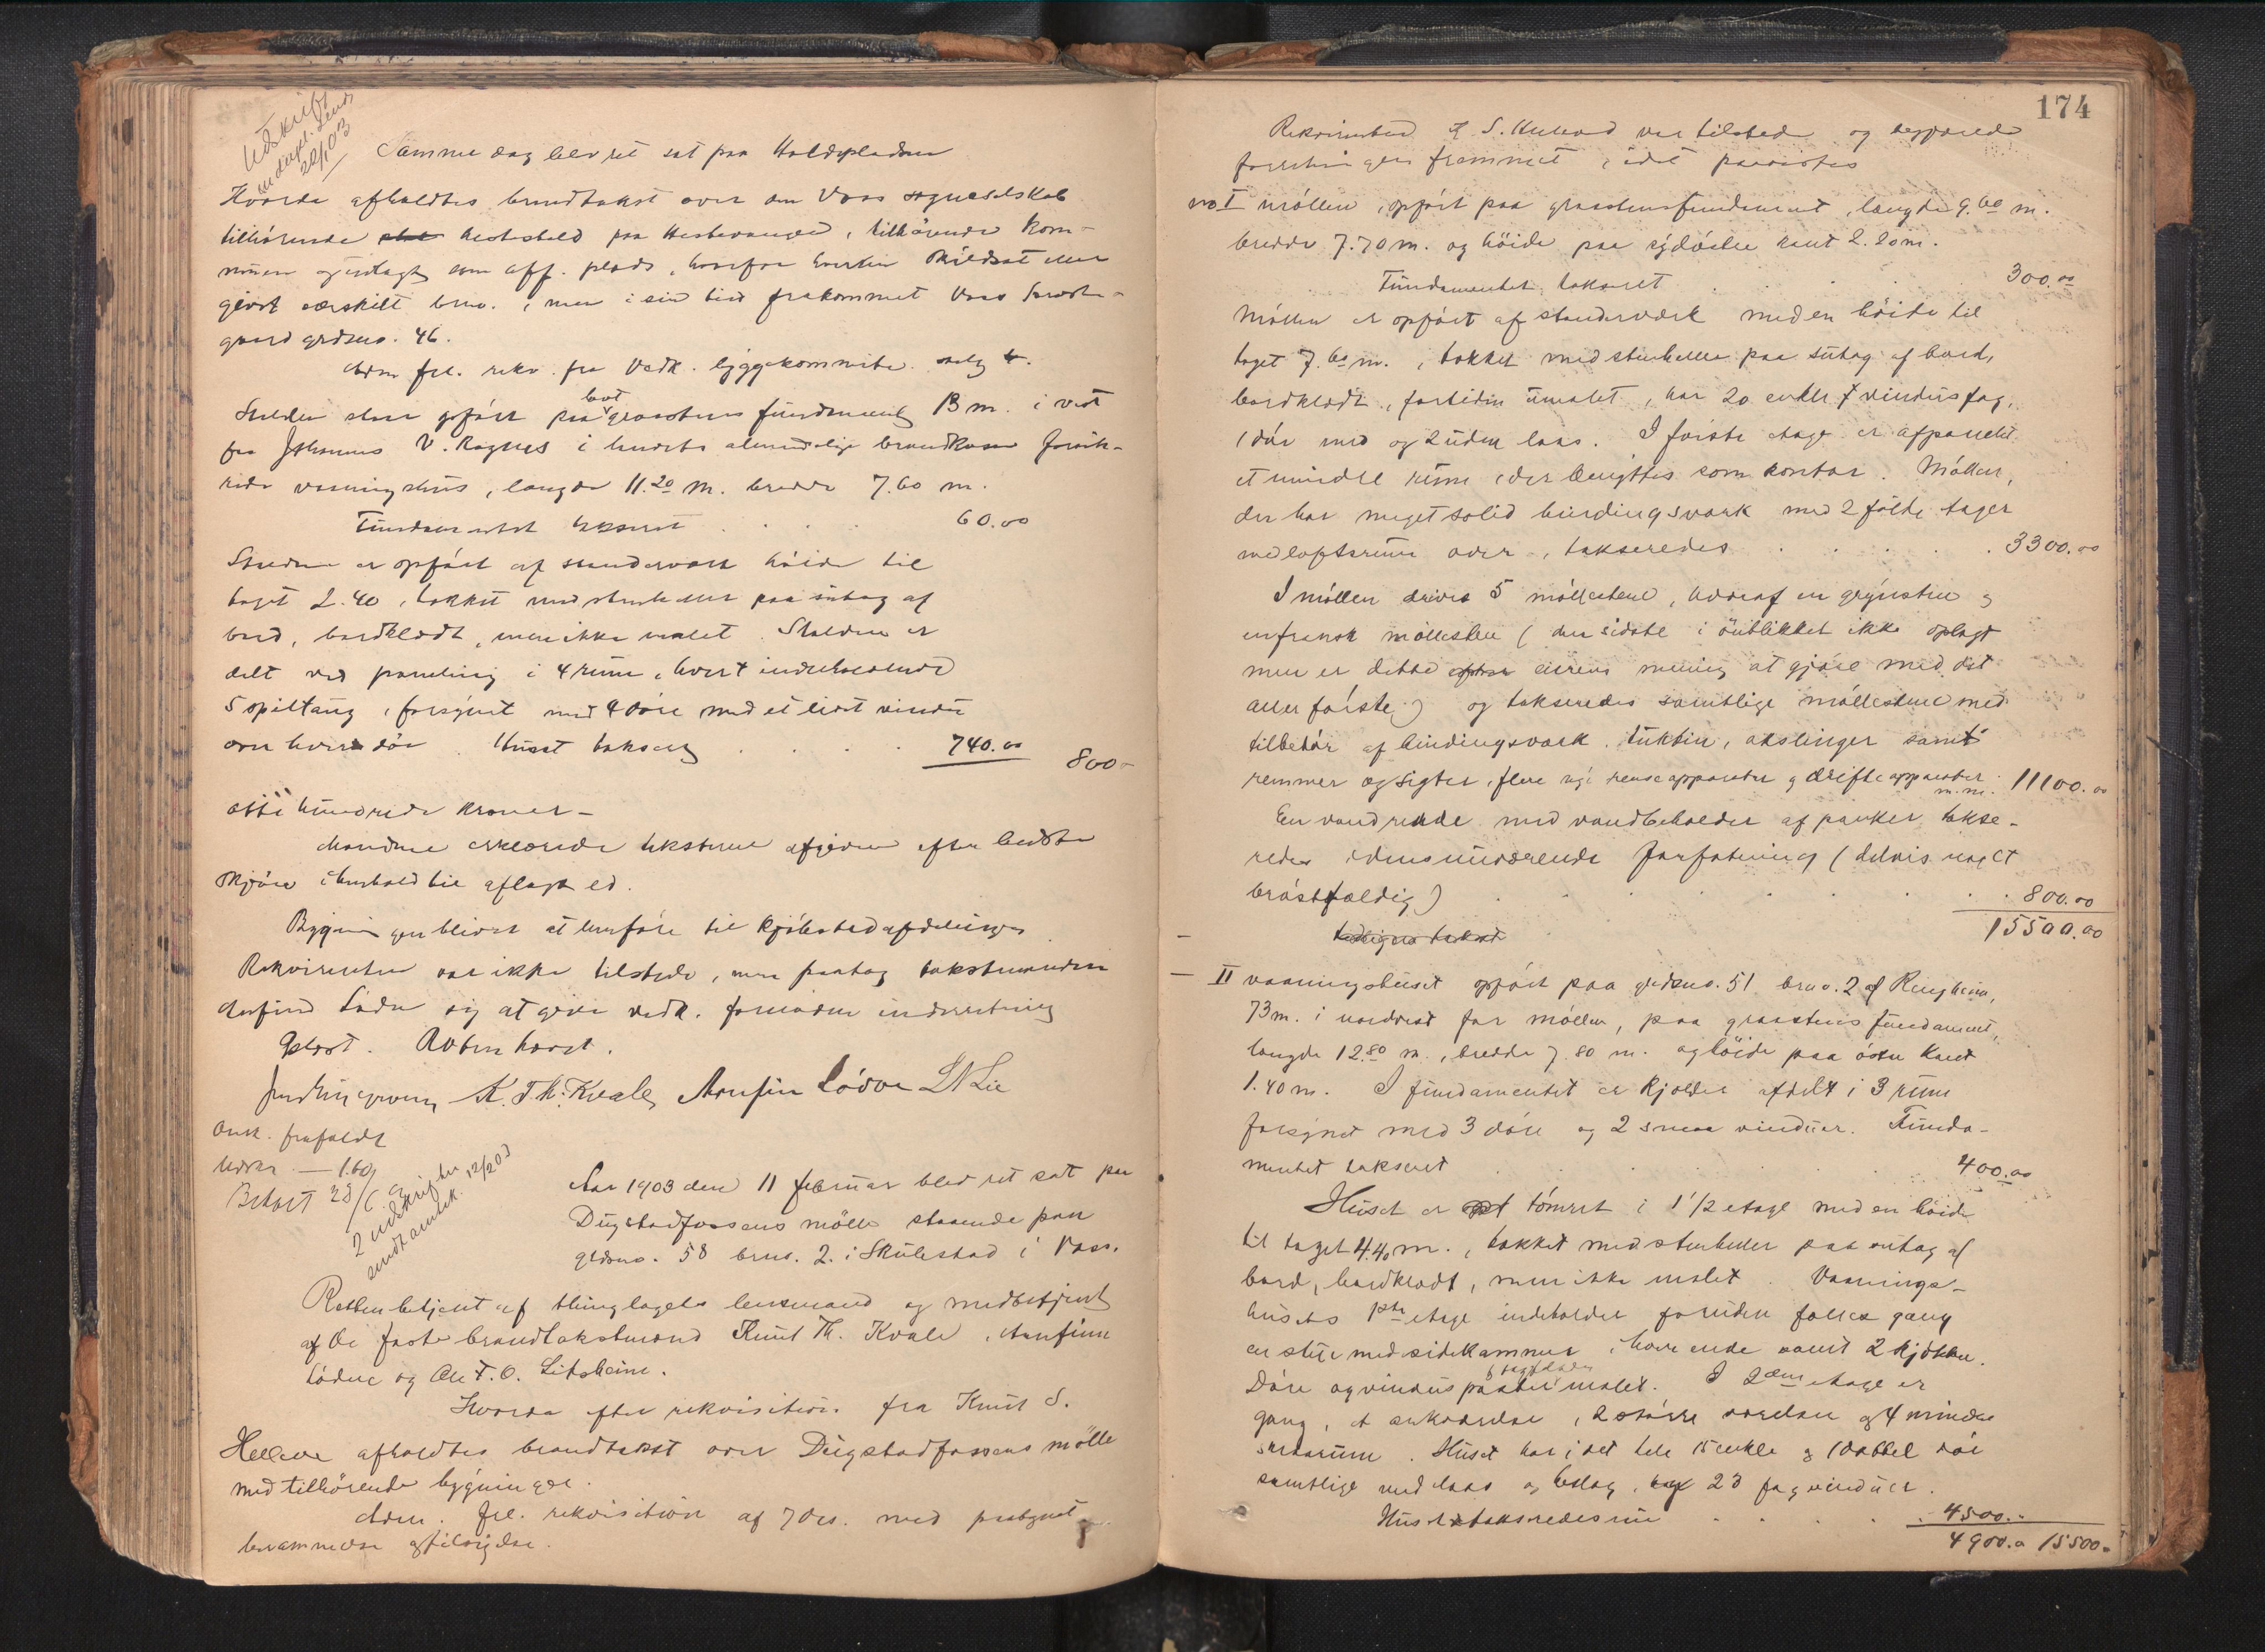 Udskrift
Samme dag blev ret sat paa Holdepladsen
Hvorda afholdtes brandtakst over en Voss
tilhørende hestestald paa Hestevangen, tilhørende Kom-
mune og udlagt som off. plads, hvorfor hverken skildsat eller
givet særskilt brno. , men i sin tid frakommet Voss
gaard grdsno. 46.
Adm. frl. rekv. fra Vedk. byggekommite
Stalden staar opført paa graastens fundament 13 m. i vest
fra Johannes V. Ragnes i landets almindelige brandkasse forsik-
rede vaaningshus, længde 11.20 m. bredde 7.60 m.
Fundamentet takseret 60.00
Stalden er opført af standerværk høide til
taget 2.40, tækket med stenheller paa sutag af
bord, bordklædt, men ikke malet. Stalden er
delt ved paneling i 4 rum, hvert indeholdende
5 spiltaug, forsynet med 4 døre med et lidet vindu
over hver dør. Huset takseret 740.00
800-
otte hundrede kroner-
Mændene erklærede taksterne afgivne efter bedste
skjøn i henhold til aflagt ed.
Bygningen bliver at henføre til Kjøbstadafdelingen
Rekvirenten var ikke tilstede, men paatog takstmanden
Arnfind Lødve sig at give vedk. fornøden underretning
Oplæst. Retten hævet.
K. Th. Kvale, Arnfin Lødve L N Lie
Ansk. frafaldt
Udskr. — 1.60
Betalt 28/
2 udskrifter
sendt amtsk. 12/2 03
Aar 1903 den 11 februar blev ret sat paa
Dugstadfossens mølle staaende paa
grdsno. 58 brno. 2. i Skulestad i Voss.
Retten betjent af thinglagets lensmand og medbetjent
af de faste brandtakstmænd Knut Th. Kvale, Arnfinn
Lødve og Ole T. O. Litsheim.
Hvorda efter rekvisition fra Knut S.
Helleve afholdtes brandtakst over Dugstadfossens mølle
med tilhørende bygninger.
Adm. frl. rekvisition af 7 ds. med paategnet
berammelse og tilsigelse.
174
Rekvirenten K. S. Helleve var tilstede og begjærede
forretningen fremmet, idet paavistes
no I møllen, opført paa graastensfundament, længde 9.60 m.
bredde 7.70 m. og høide paa sydøstre kant 2.20 m.
Fundamentet takseret 300.00
Møllen er opført af standerværk med en høide til
taget 7.60 m., tækket med stenheller paa sutag af bord,
bordklædt, fortiden umalet, har 20 enkle vindusfag,
1 dør med og 2 uden laas. I første etage er afpanelet
et mindre rum der benyttes som kontor. Møllen,
der har meget solid bindingsværk med 2 foldte lager
med loftsrum over, takseredes 3300.00
I møllen drives 5 møllestene, hvoraf en grynsten og
en fransk møllesten (den sidste i øieblikket ikke oplagt
men er dette eierens mening at gjøre med det
aller første) og takseredes samtlige møllestene med
tilbehør af bindingsværk, akslinger samt
remmer og sigter, flere nye renseapparater og drifteapparater m.m. 11100.00
En vandrende med vandbeholder af planker takse-
redes i dens nuværende forfatning (delvis noget
brøstfældig) 800.00
15500.00
— II vaaningshuset opført paa grdsno. 51 brno. 2 af Ringheim,
73 m. i nordvest for møllen, paa graastens fundament,
længde 12.80 m., bredde 7.80 m. og høide paa østre kant
1.40 m. I fundamentet er kjælder afdelt i 3 rum
forsynet med 3 døre og 2 smaa vinduer. Funda-
mentet takseret 400.00
Huset er tømret i 1 1/2 etage med en høide
til taget 4.40 m., tækket med stenheller paa sutag af
bord, bordklædt, men ikke malet. Vaanings-
husets 1ste etage indeholder foruden fælles gang
en stue med sidekammer i hver ende samt 2 kjøkken.
Døre og vindusposter malet. I 2den etage er
gang, et ankværelse, 2 større værelser og 4 mindre
Huset har i det hele 15 enkle og 1 dobbel dør
samtlige med laas og beslag, og 23 fag vinduer.
Huset takseredes 4500.-
4900.- 15500.-